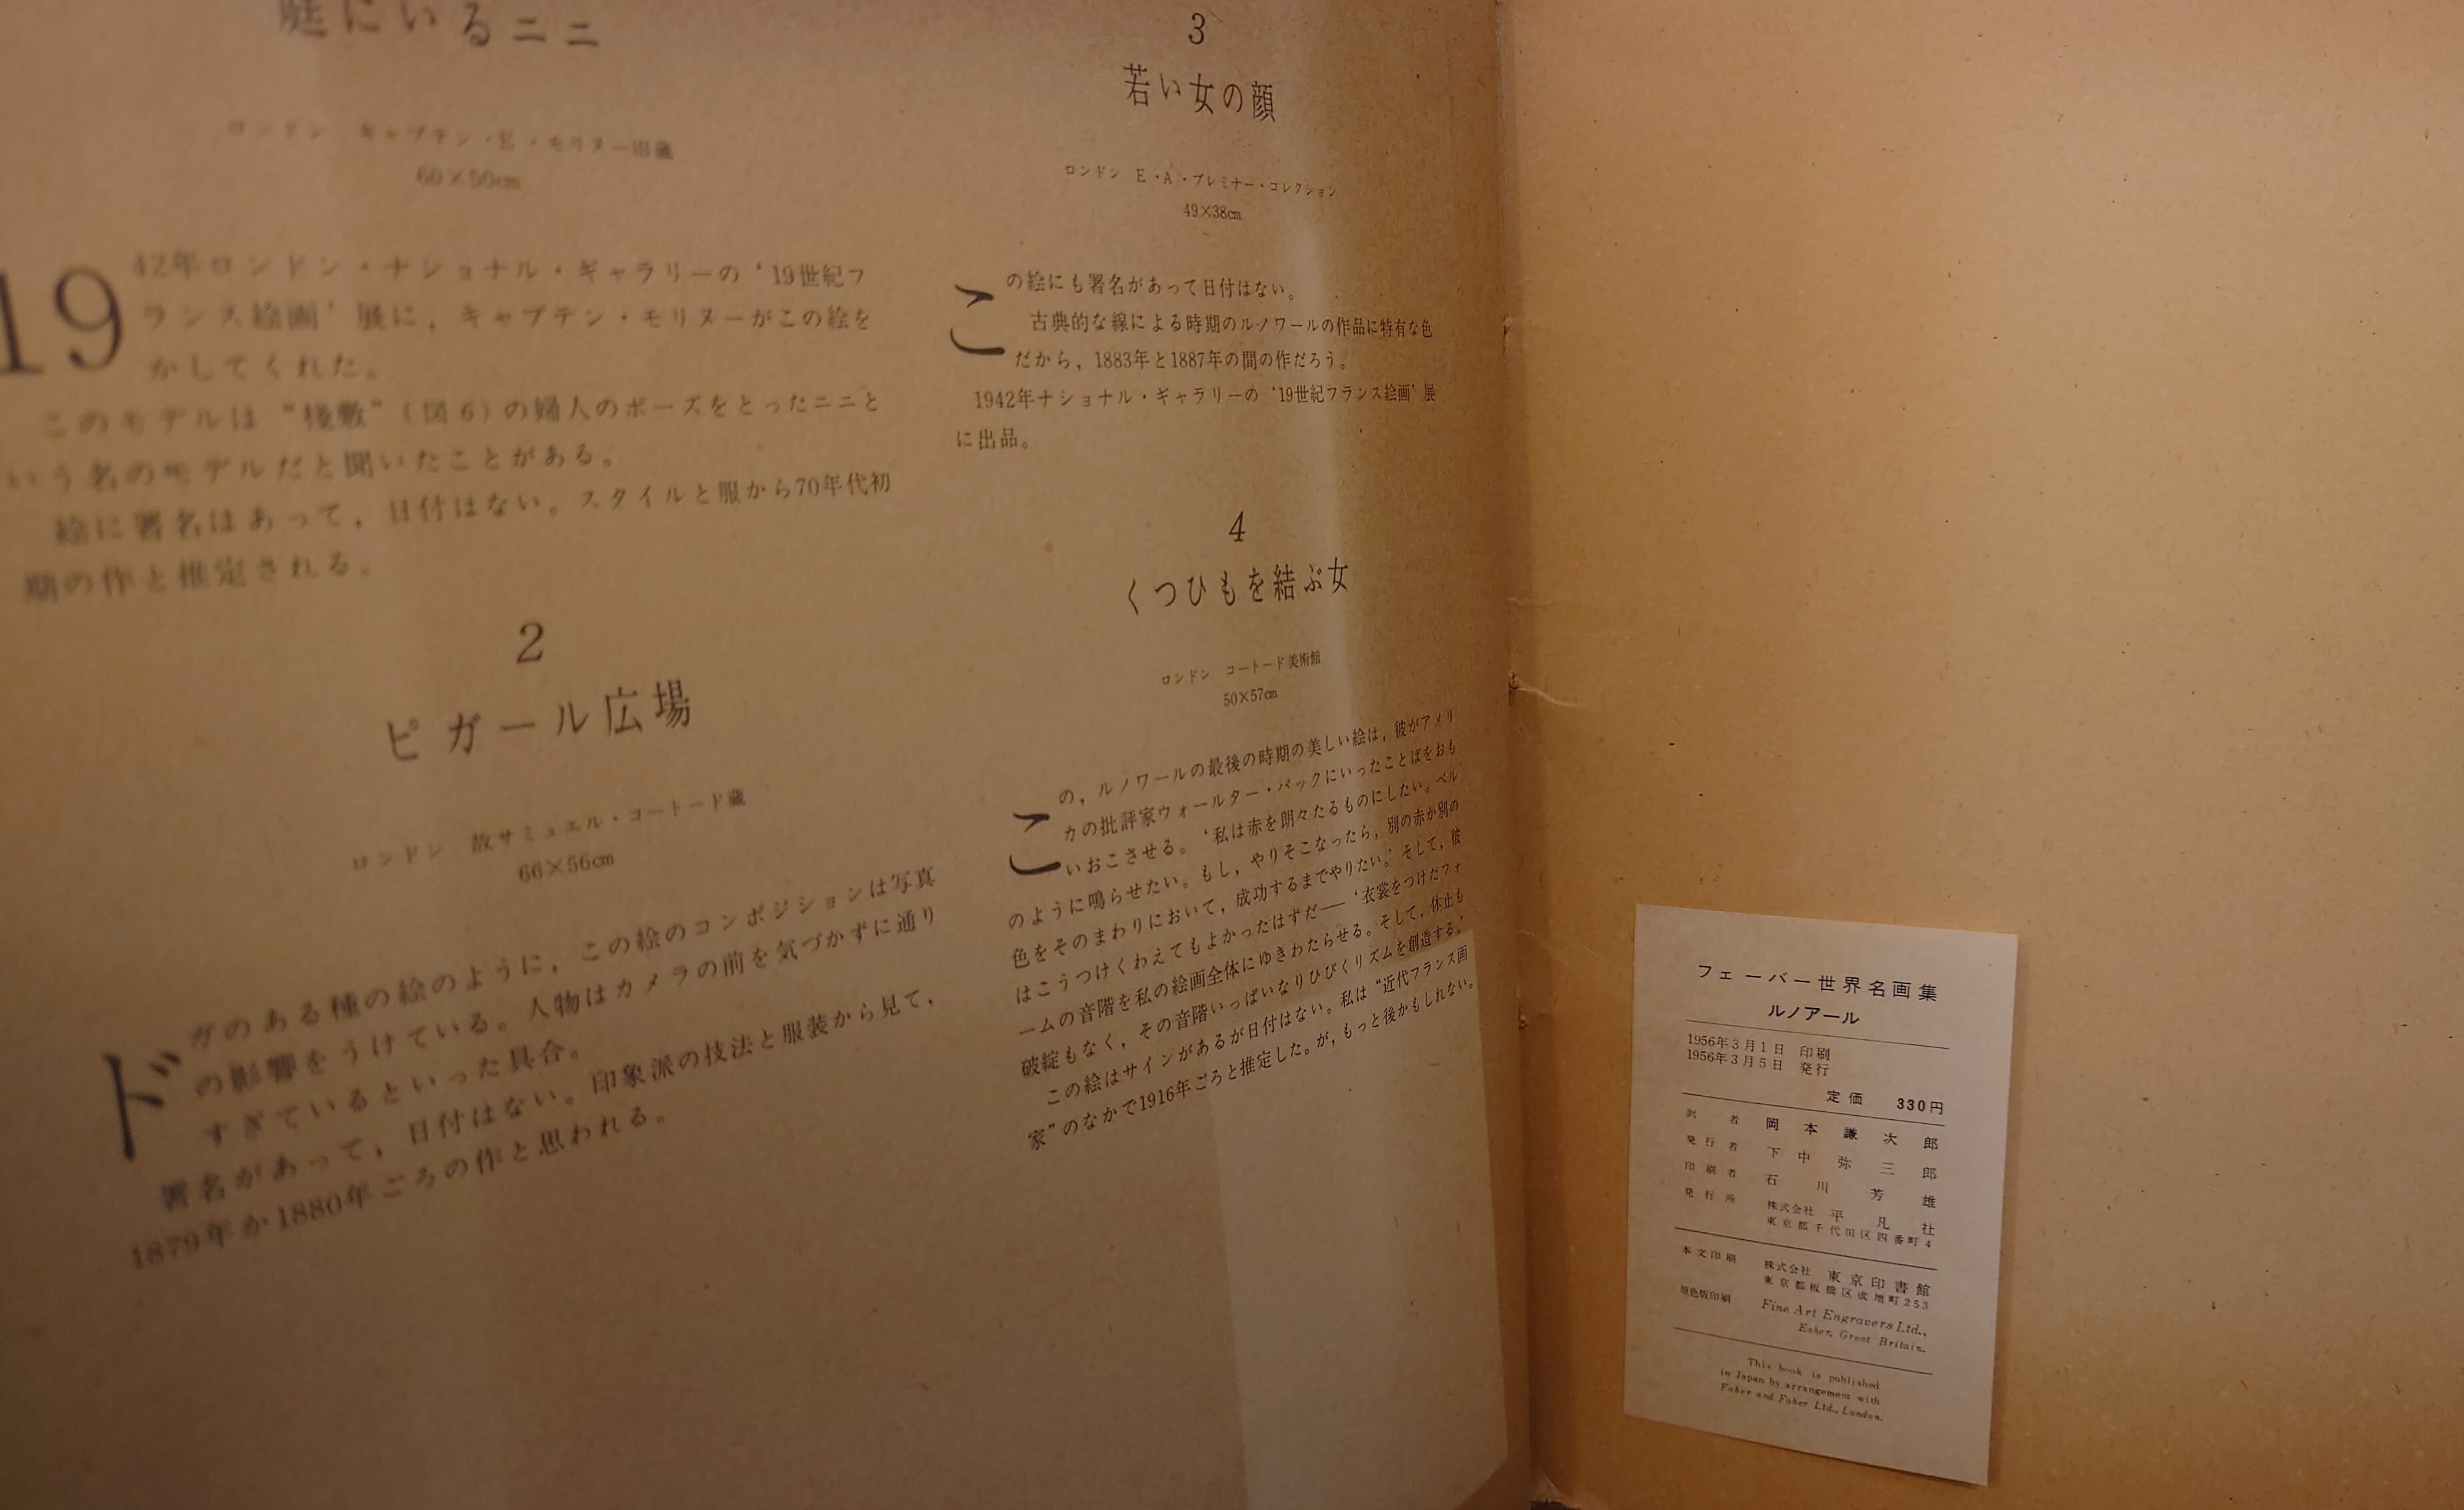 庭にいるニニ
ロンドン　キャプテン・E・モリヌー旧蔵
60×50cm
1942年ロンドン・ナショナル・ギャラリーの‘19世紀フ
ランス絵画’展に，キャプテン・モリヌーがこの絵を
かしてくれた。
このモデルは“棧敷”（図6）の婦人のポーズをとったニニと
いう名のモデルだと聞いたことがある。
絵に署名はあって，日付はない。スタイルと服から70年代初
期の作と推定される。
2
ピガール広場
ロンドン　故サミュエル・コートード蔵
66×56cm
ドガのある種の絵のように，この絵のコンポジションは写真
の影響をうけている。人物はカメラの前を気づかずに通り
すぎているといった具合。
署名があって，日付はない。印象派の技法と服装から見て，
1879年か1880年ごろの作と思われる。
3
若い女の顔
ロンドン　E・A・ブレミナー・コレクション
49×38cm
この絵にも署名があって日付はない。
古典的な線による時期のルノワールの作品に特有な色
だから，1883年と1887年の間の作だろう。
1942年ナショナル・ギャラリーの‘19世紀フランス絵画’展
に出品。
4
くつひもを結ぶ女
ロンドン　コートード美術館
50×57cm
この，ルノワールの最後の時期の美しい絵は，彼がアメリ
カの批評家ウォールター・パックにいったことばをおも
いおこさせる。‘私は赤を朗々たるものにしたい。ベル
のように鳴らせたい。もし，やりそこなったら，別の赤か別の
色をそのまわりにおいて，成功するまでやりたい。’そして，彼
はこうつけくわえてもよかったはずだ──‘衣裳をつけたフォ
ームの音階を私の絵画全体にゆきわたらせる。そして，休止も
破綻もなく，その音階いっぱいなりひびくリズムを創造する。’
この絵はサインがあるが日付はない。私は“近代フランス画
家”のなかで1916年ごろと推定した。が，もっと後かもしれない。
フェーバー世界名画集
ルノアール
1956年3月1日　印刷
1956年3月5日　発行
定価　330円
訳者　岡本謙次郎
発行者　下中弥三郎
印刷者　石川芳雄
発行所　株式会社　平凡社
東京都千代田区四番町4
本文印刷　株式会社　東京印書館
東京都板橋区成増町253
原色版印刷　Fine Art Engravers Ltd.,
Esher, Great Britain.
This book is published
in Japan by arrangement with
Faber and Faber Ltd., London.